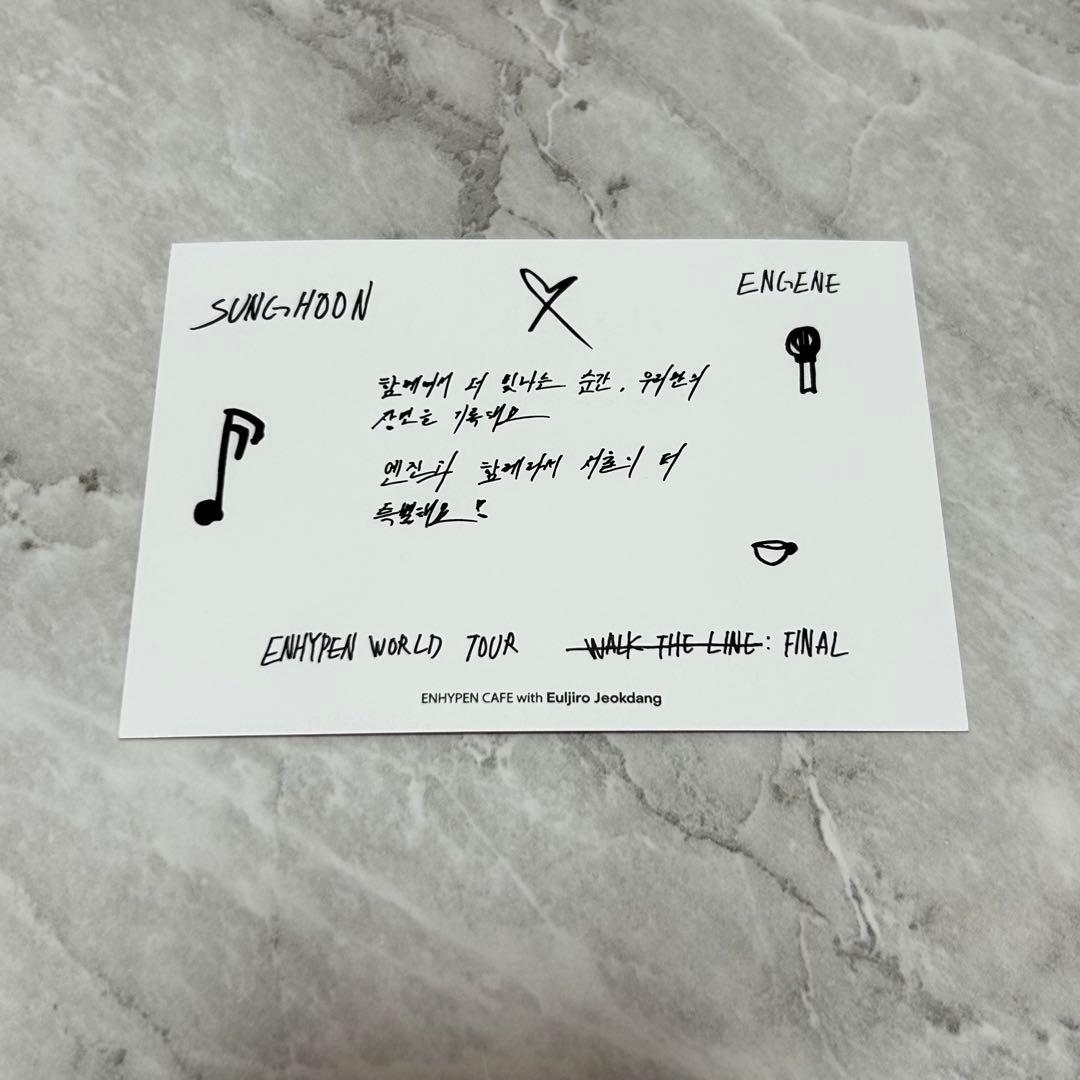 SUNGHOON
ENGENE
함께여서 더 빛나는 순간, 우리만의
장면을 기록해요
엔진과 함께라서 서울이 더
특별해요!
ENHYPEN WORLD TOUR WALK THE LINE: FINAL
ENHYPEN CAFE with Euljiro Jeokdang